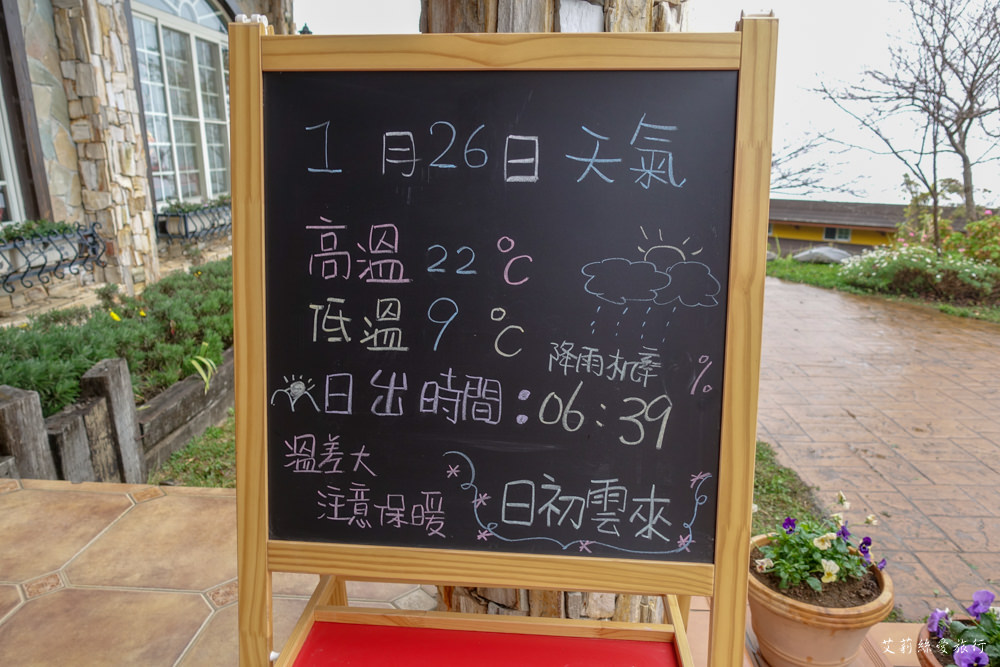 1月26日 天氣
高溫 22 ℃
低溫 9 ℃
降雨机率 %
日出時間：06：39
溫差大
注意保暖
日初雲來
艾莉絲愛旅行